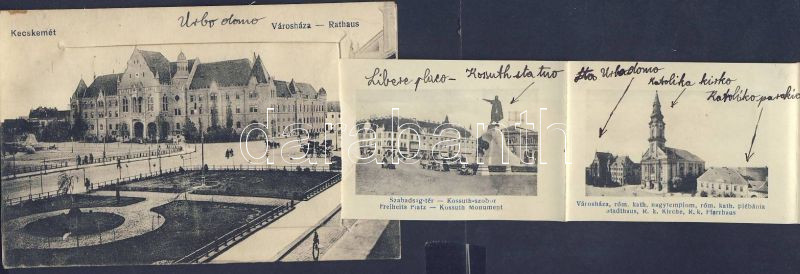 Kecskemét
Urbo domo
Városháza — Rathaus
Libere placo - Kossuth statuo
Szabadság-tér — Kossuth-szobor
Freiheits Platz — Kossuth Monument
Urbodomo
Katolika kirko
Katoliko parokio
Városháza, róm. kath. nagytemplom, róm. kath. plébánia
Stadthaus, R. k. Kirche, R. k. Pfarrhaus
darabanth